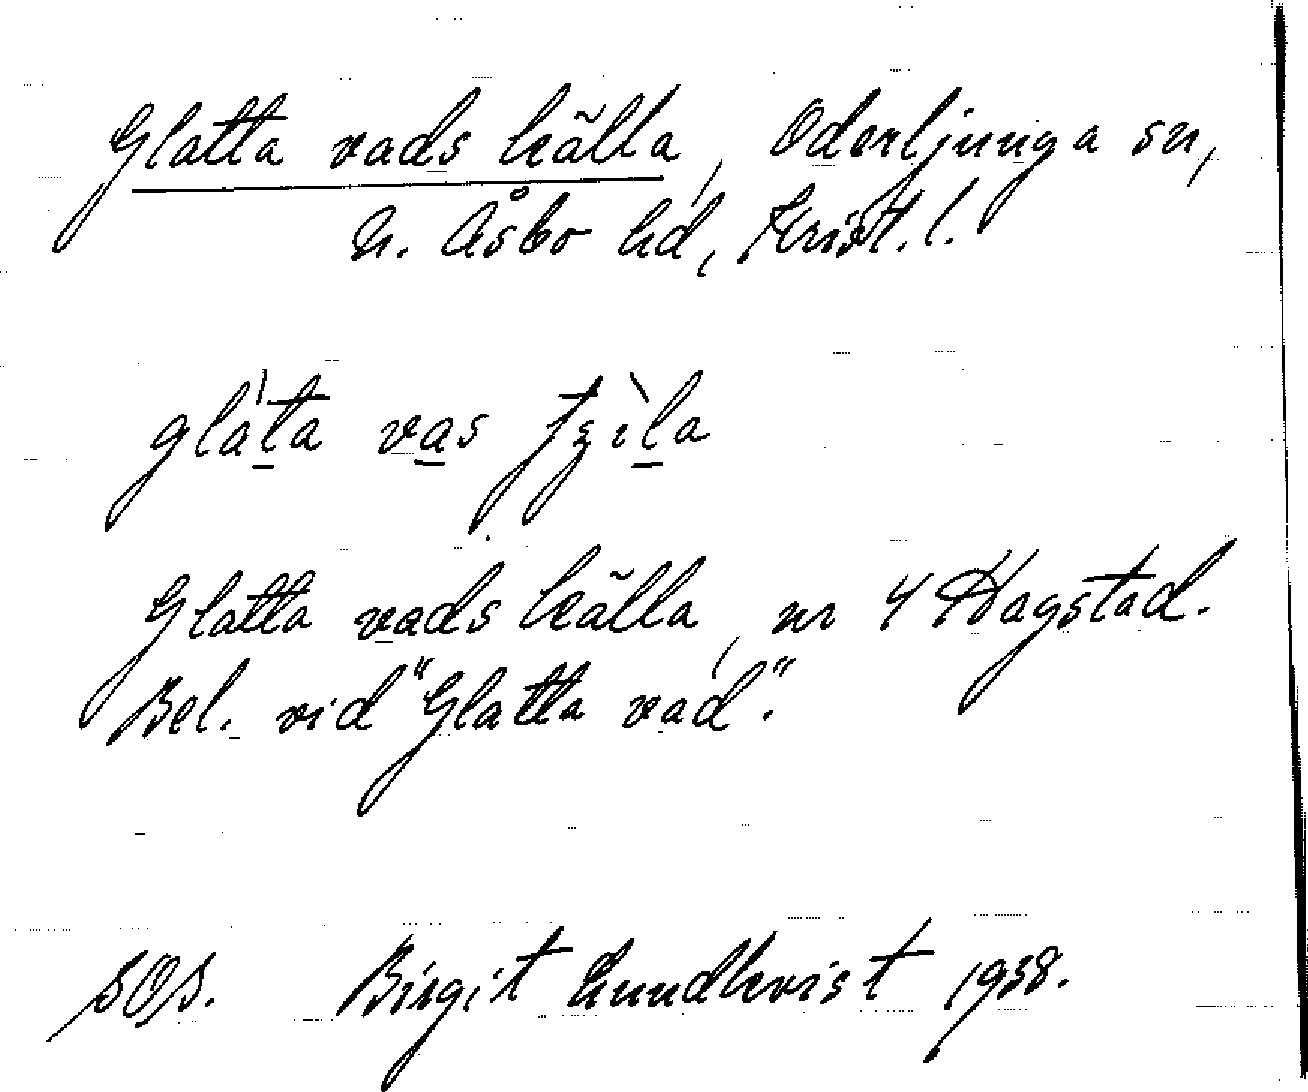 Glatta vads källa, Oderljunga sn,
N. Åsbo hd, Krist. l.
glàta vas
Glatta vads källa, nr 4 Hagstad.
Bel. vid "Glatta vad".
SOS. Birgit Lundkvist 1938.